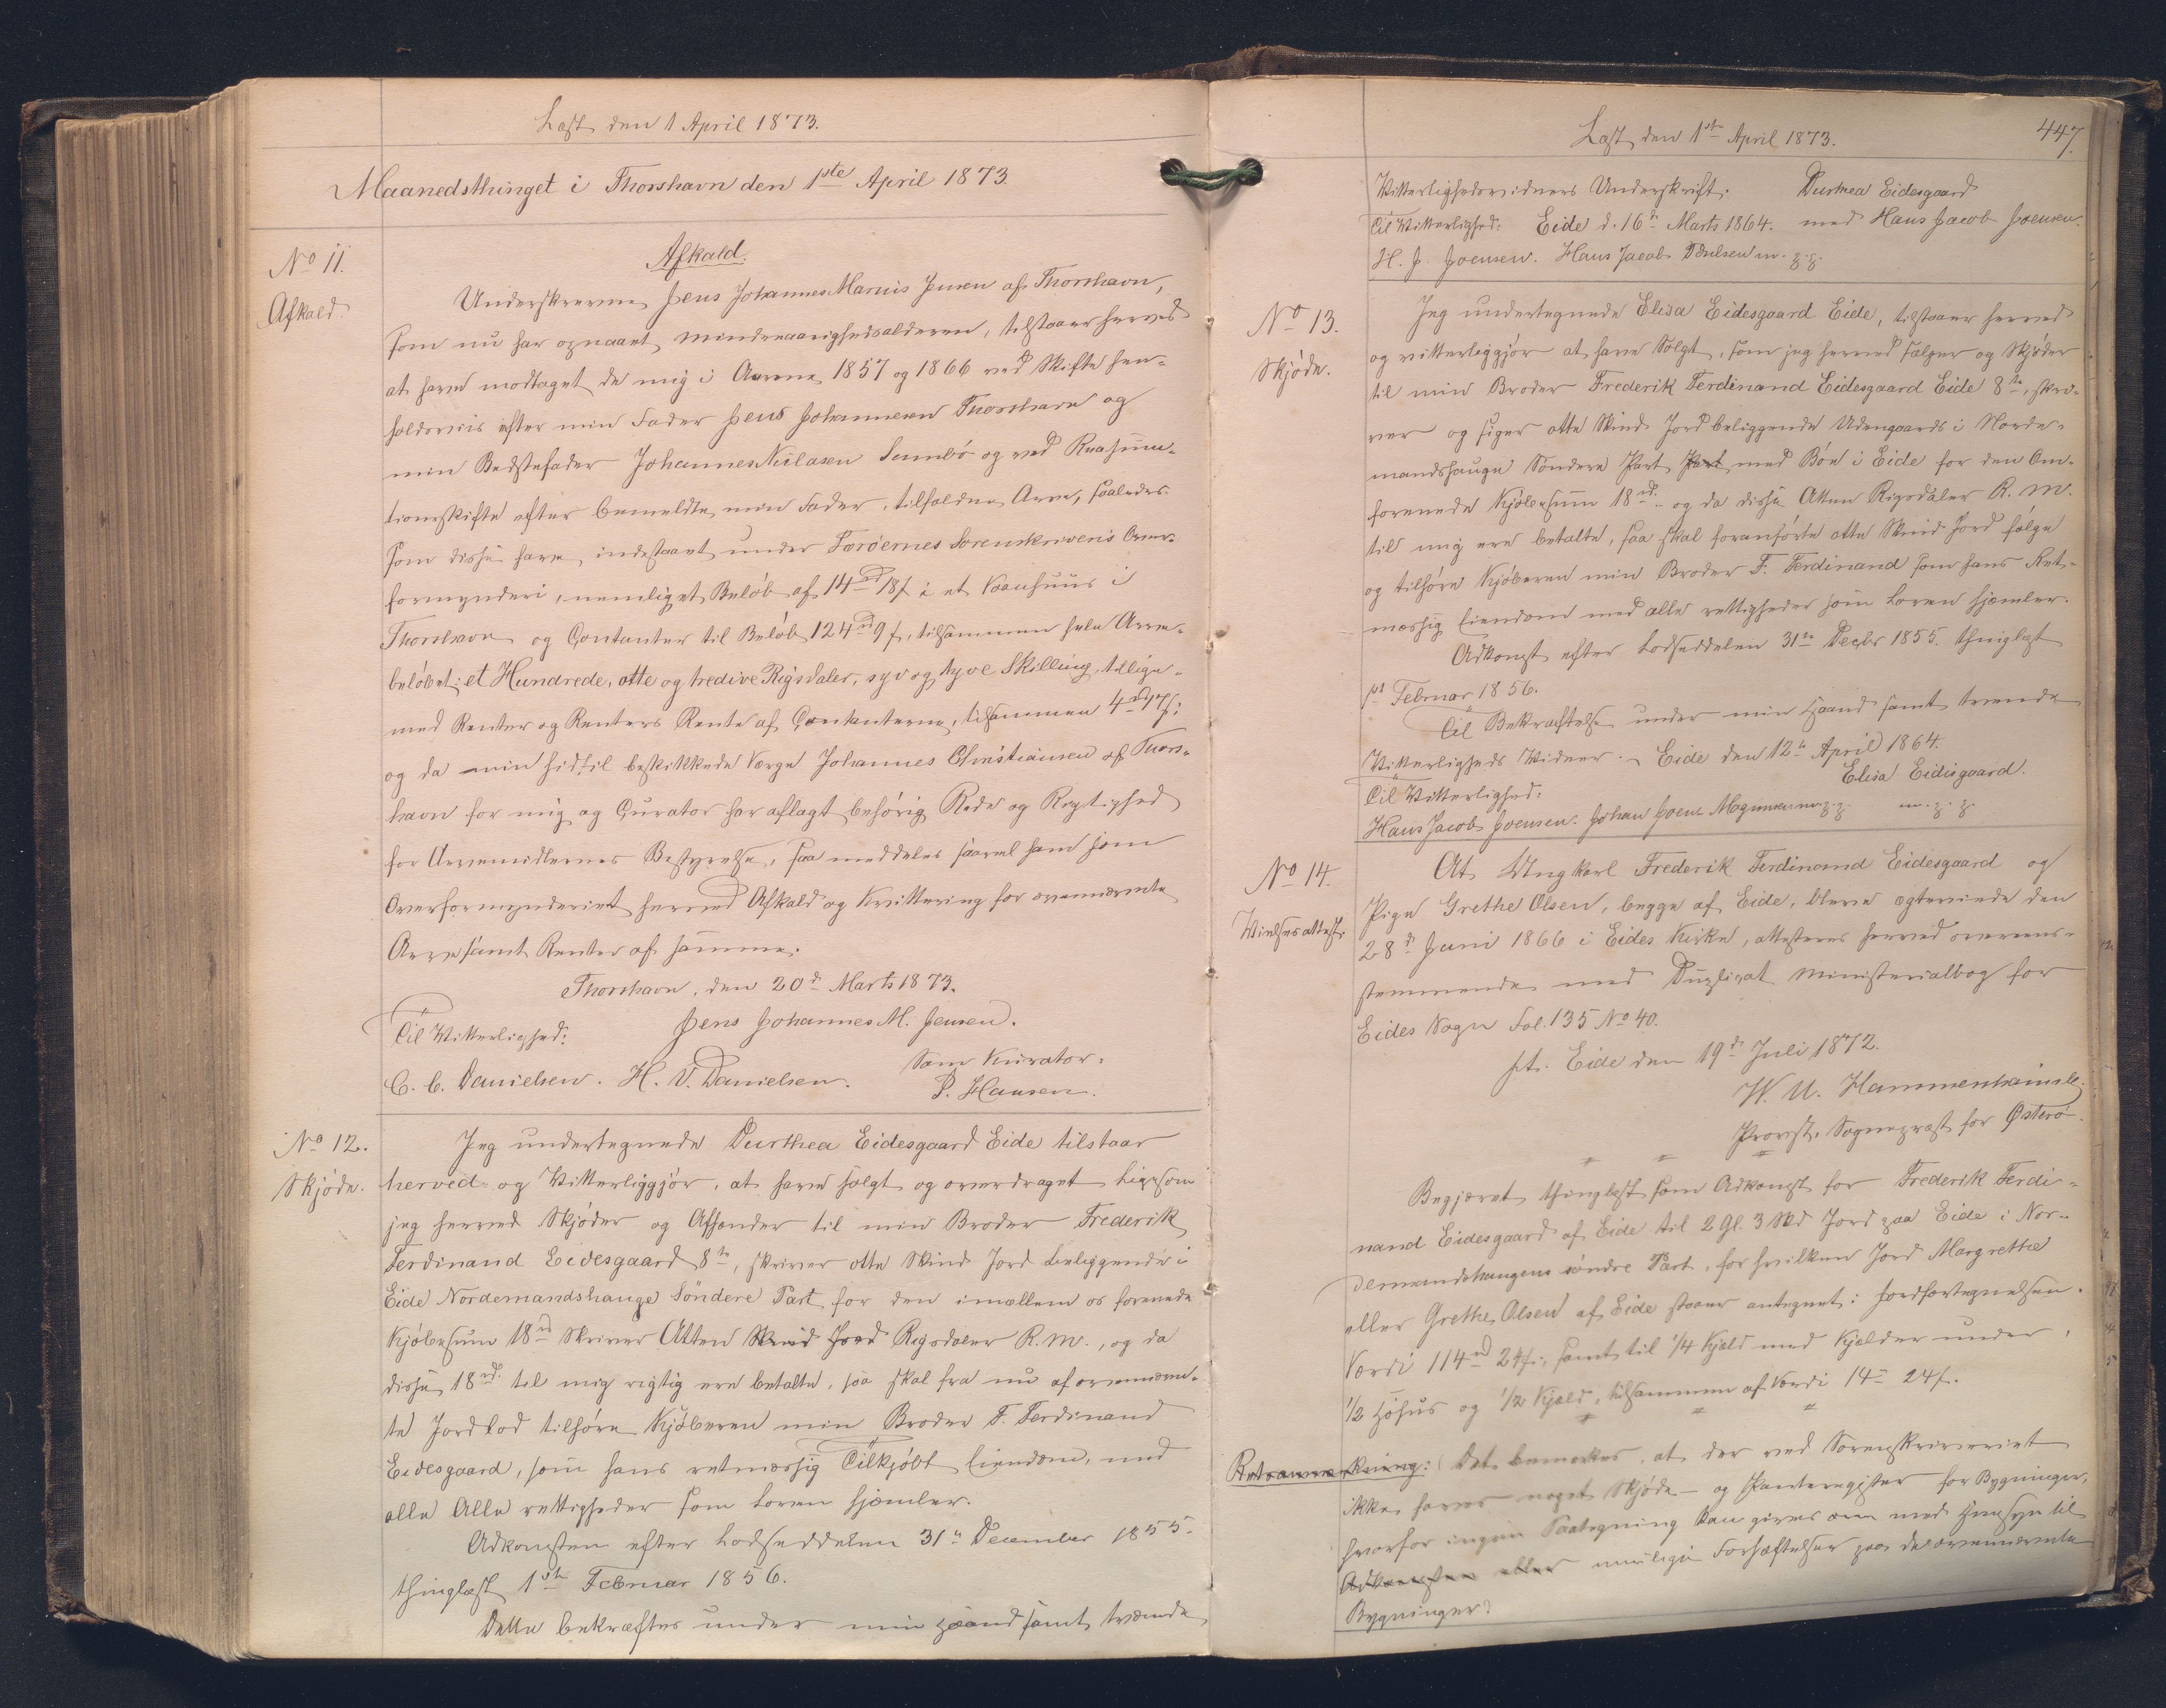 Læst den 1 April 1873.
Maanedsthinget i Thorshavn den 1ste April 1873.
No 11.
Afkald.
Afkald.
Underskrevne Jens Johannes Marius Jensen af Thorshavn,
som nu har opnaaet Mindreaarighedsalderen, tilstaaer herved
at have modtaget de mig i Aarene 1857 og 1866 ved Skifte hen-
holdsviis efter min Fader Jens Johannesen Thorshavn og
min Bedstefader Johannes Niclasen Sumbö og ved Reassum-
tionsskifte efter bemeldte min Fader, tilfaldne Arve, saaledes
som disse have indestaaet under Færöernes Sorenskriveris Over-
formynderi, nemlig et Belöb af 14 rd 18 f i et Vaanhuus i
Thorshavn og Contanter til Belöb 124 rd 9 f, tilsammen hele Arve-
belöbet: et Hundrede, otte og tredive Rigsdaler, syv og tyve Skilling, tillige-
med Renter og Renters Rente af Contanterne, tilsammen 4 rd 17 f;
og da min hidtil beskikkede Værge Johannes Christiansen af Thors-
havn for mig og Curator har aflagt behörig Rede og Rigtighed
for Arvemidlernes Bestyrelse, saa meddeles saavel ham som
Overformynderiet herved Afkald og Kvittering for ovennævnte
Arv samt Renter af samme.
Thorshavn, den 20d Marts 1873.
Til Vitterlighed: Jens Johannes M. Jensen.
C. C. Danielsen. H. V. Danielsen. Som Kurator:
P. Hansen.
No 12.
Skjöde.
Jeg undertegnede Durthea Eidesgaard Eide tilstaar
herved og Vitterliggjör, at have solgt og overdraget ligesom
jeg herved Skjöder og Afhænder til min Broder Frederik
Ferdinand Eidesgaard 8te, skriver otte Skind Jord beliggende i
Eide Nordemandshauge Söndere Part for den imellem os forenede
Kjöbesum 18 rd Skriver Atten Skind Jord Rigsdaler R. M., og da
disse 18 rd. til mig rigtig ere betalte, saa skal fra nu af ovennævn-
te Jordlod tilhöre Kjöberen min Broder F. Ferdinand
Eidesgaard, som hans retmæssig Tilkjöbt Eiendom, med
alle Alle rettigheder som Loven hjemler.
Adkomsten efter Lodseddelen 31te December 1855
thinglæst 1ste Februar 1856.
Dette bekræftes under min Haand samt tvende
Læst den 1ste April 1873.
447.
Vitterlighedsvidners Underskrift. Durthea Eidesgaard
Til Vitterlighed: Eide d. 16de Marts 1864. med Hans Jacob Joensen.
H. J. Joensen. Hans Jacob Poulsen m. p. p.
No 13.
Skjöde.
Jeg undertegnede Elisa Eidesgaard Eide, tilstaaer herved
og vitterliggjör at have Solgt, som jeg herved sælger og Skjöder
til min Broder Frederik Ferdinand Eidesgaard Eide 8te, skri-
ver og siger otte Skind Jord beliggende Udengaards i Norde-
mandshauge Söndere Part Part med Böe i Eide for den Om-
forenede Kjöbesum 18 rd. og da disse Atten Rigsdaler R. M.
til mig ere betalte, saa skal foranförte otte Skind Jord fölge
og tilhöre Kjöberen min Broder F. Ferdinand som hans Ret-
mæssig Eiendom med alle rettigheder som Loven hjemler.
Adkomst efter Lodseddelen 31te Decbr 1855. thinglæst
1st Februar 1856.
Til Bekræftelse under min Haand samt tvende
Vitterligheds Vidner. Eide den 12te April 1864.
Til Vitterlighed: Elisa Eidisgaard.
Hans Jacob Joensen. Johan Joen. Magnusen m. p. p. m. p. p.
No 14.
Vielsesattest.
At Ungkarl Frederik Ferdinand Eidesgaard og
Pige Grethe Olsen, begge af Eide, bleve ægteviede den
28d Juni 1866 i Eides Kirke, attesteres herved overeens-
stemmende med Duplicat Ministerialbog for
Eides Sogn Fol. 135 No 40.
pt. Eide den 19d Juli 1872.
W. U. Hammershaimb.
Provst, Sognepræst for Österö.
Begjæret thinglæst som Adkomst for Frederik Ferdi-
nand Eidesgaard af Eide til 2 Gl. 3 Skd Jord paa Eide i Nor-
demandshaugens söndre Part, for hvilken Jord Margrethe
eller Grethe Olsen af Eide staaer antegnet i Jordfortegnelsen.
Værdi 114 rd 24 f., samt til 1/4 Kjæld med Kjælder under,
1/2 Höhus og 1/2 Kjæld, tilsammen af Værdi 14 rd 24 f.
Retsanmærkning: Det bemærkes, at der ved Sorenskriveriet
ikke haves noget Skjöde- og Panteregister for Bygninger,
hvorfor ingen Paategning kan gives om med Hensyn til
Adkomsten eller mulige Forhæftelser paa de ovennævnte
Bygninger.